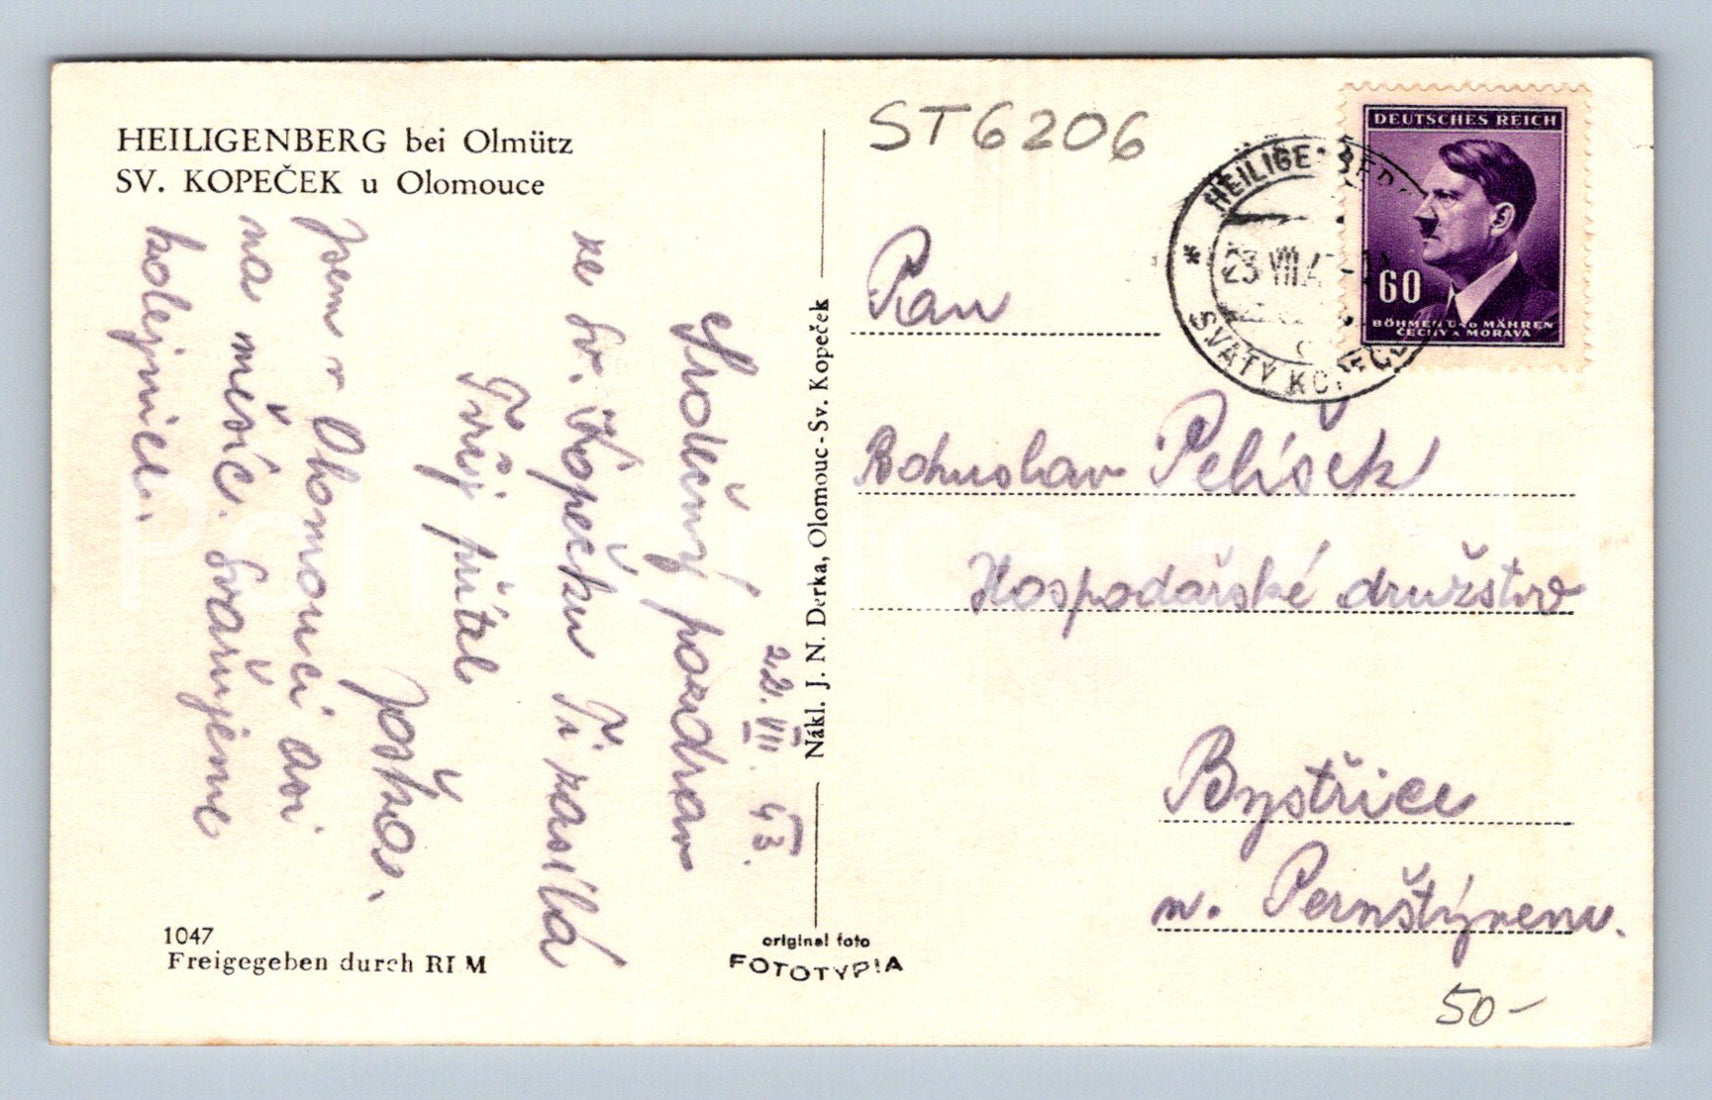 HEILIGENBERG bei Olmütz
SV. KOPEČEK u Olomouce
22. VIII. 43.
Srdečný pozdrav
ze Sv. Kopečku Ti zasílá
Tvůj přítel
Joška.
Jsem v Olomouci asi
na měsíc. Svařujeme
kolejnice.
1047
Freigegeben durch RLM
Nákl. J. N. Derka, Olomouc - Sv. Kopeček
original foto
FOTOTYPIA
ST6206
DEUTSCHES REICH
60
BÖHMEN UND MÄHREN
ČECHY A MORAVA
HEILIGENBERG
23 VIII 4
SVATÝ KOPEČEK
Pan
Bohuslav Pelíšek
Hospodářské družstvo
Bystřice
n. Pernštýnem.
50-